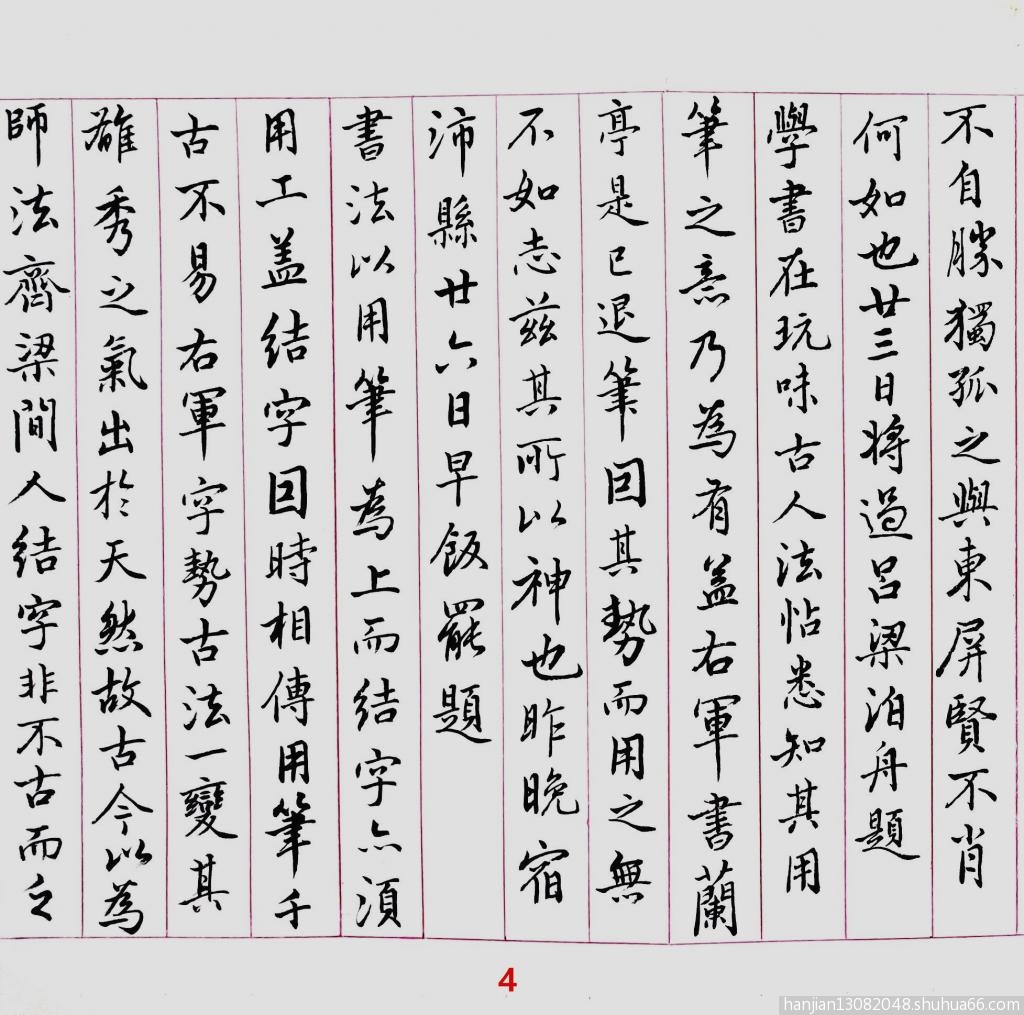 不自勝獨孤之與東屏賢不肖
何如也廿三日將過呂梁泊舟題
學書在玩味古人法帖悉知其用
筆之意乃為有益右軍書蘭
亭是已退筆因其勢而用之無
不如志茲其所以神也昨晚宿
沛縣廿六日早飯罷題
書法以用筆為上而結字亦須
用工盖結字因時相傳用筆千
古不易右軍字勢古法一變其
雄秀之氣出於天然故古今以為
師法齊梁間人結字非不古而乏
4
hanjian13082048.shuhua66.com